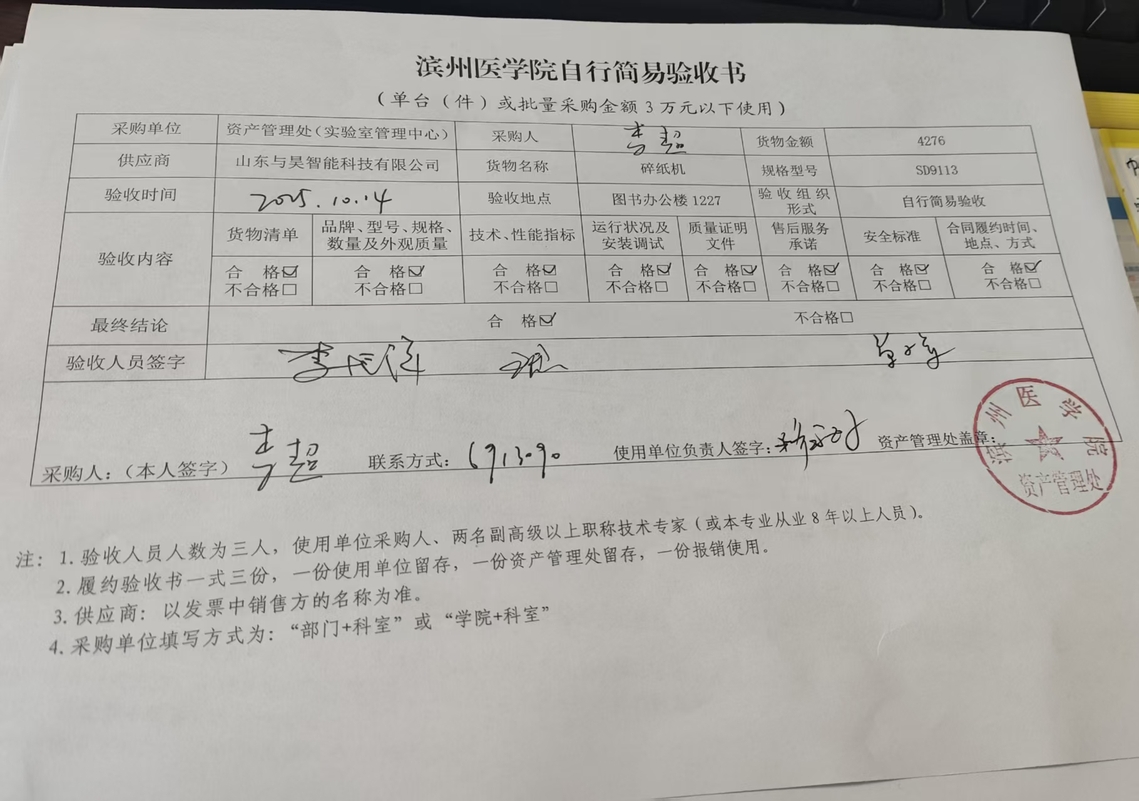 滨州医学院自行简易验收书
（单台（件）或批量采购金额3万元以下使用）
采购单位 资产管理处（实验室管理中心） 采购人 李超 货物金额 4276
供应商 山东与昊智能科技有限公司 货物名称 碎纸机 规格型号 SD9113
验收时间 2025.10.14 验收地点 图书办公楼1227 验收组织形式 自行简易验收
验收内容 货物清单 品牌、型号、规格、数量及外观质量 技术、性能指标 运行状况及安装调试 质量证明文件 售后服务承诺 安全标准 合同履约时间、地点、方式
合 格☑ 合 格☑ 合 格☑ 合 格☑ 合 格☑ 合 格☑ 合 格☑ 合 格☑
不合格□ 不合格□ 不合格□ 不合格□ 不合格□ 不合格□ 不合格□ 不合格□
最终结论 合 格☑ 不合格□
验收人员签字
采购人：（本人签字） 李超 联系方式： 6913090 使用单位负责人签字： 资产管理处盖章：
滨州医学院
资产管理处
注： 1. 验收人员人数为三人，使用单位采购人、两名副高级以上职称技术专家（或本专业从业8年以上人员）。
2. 履约验收书一式三份，一份使用单位留存，一份资产管理处留存，一份报销使用。
3. 供应商：以发票中销售方的名称为准。
4. 采购单位填写方式为：“部门+科室”或“学院+科室”